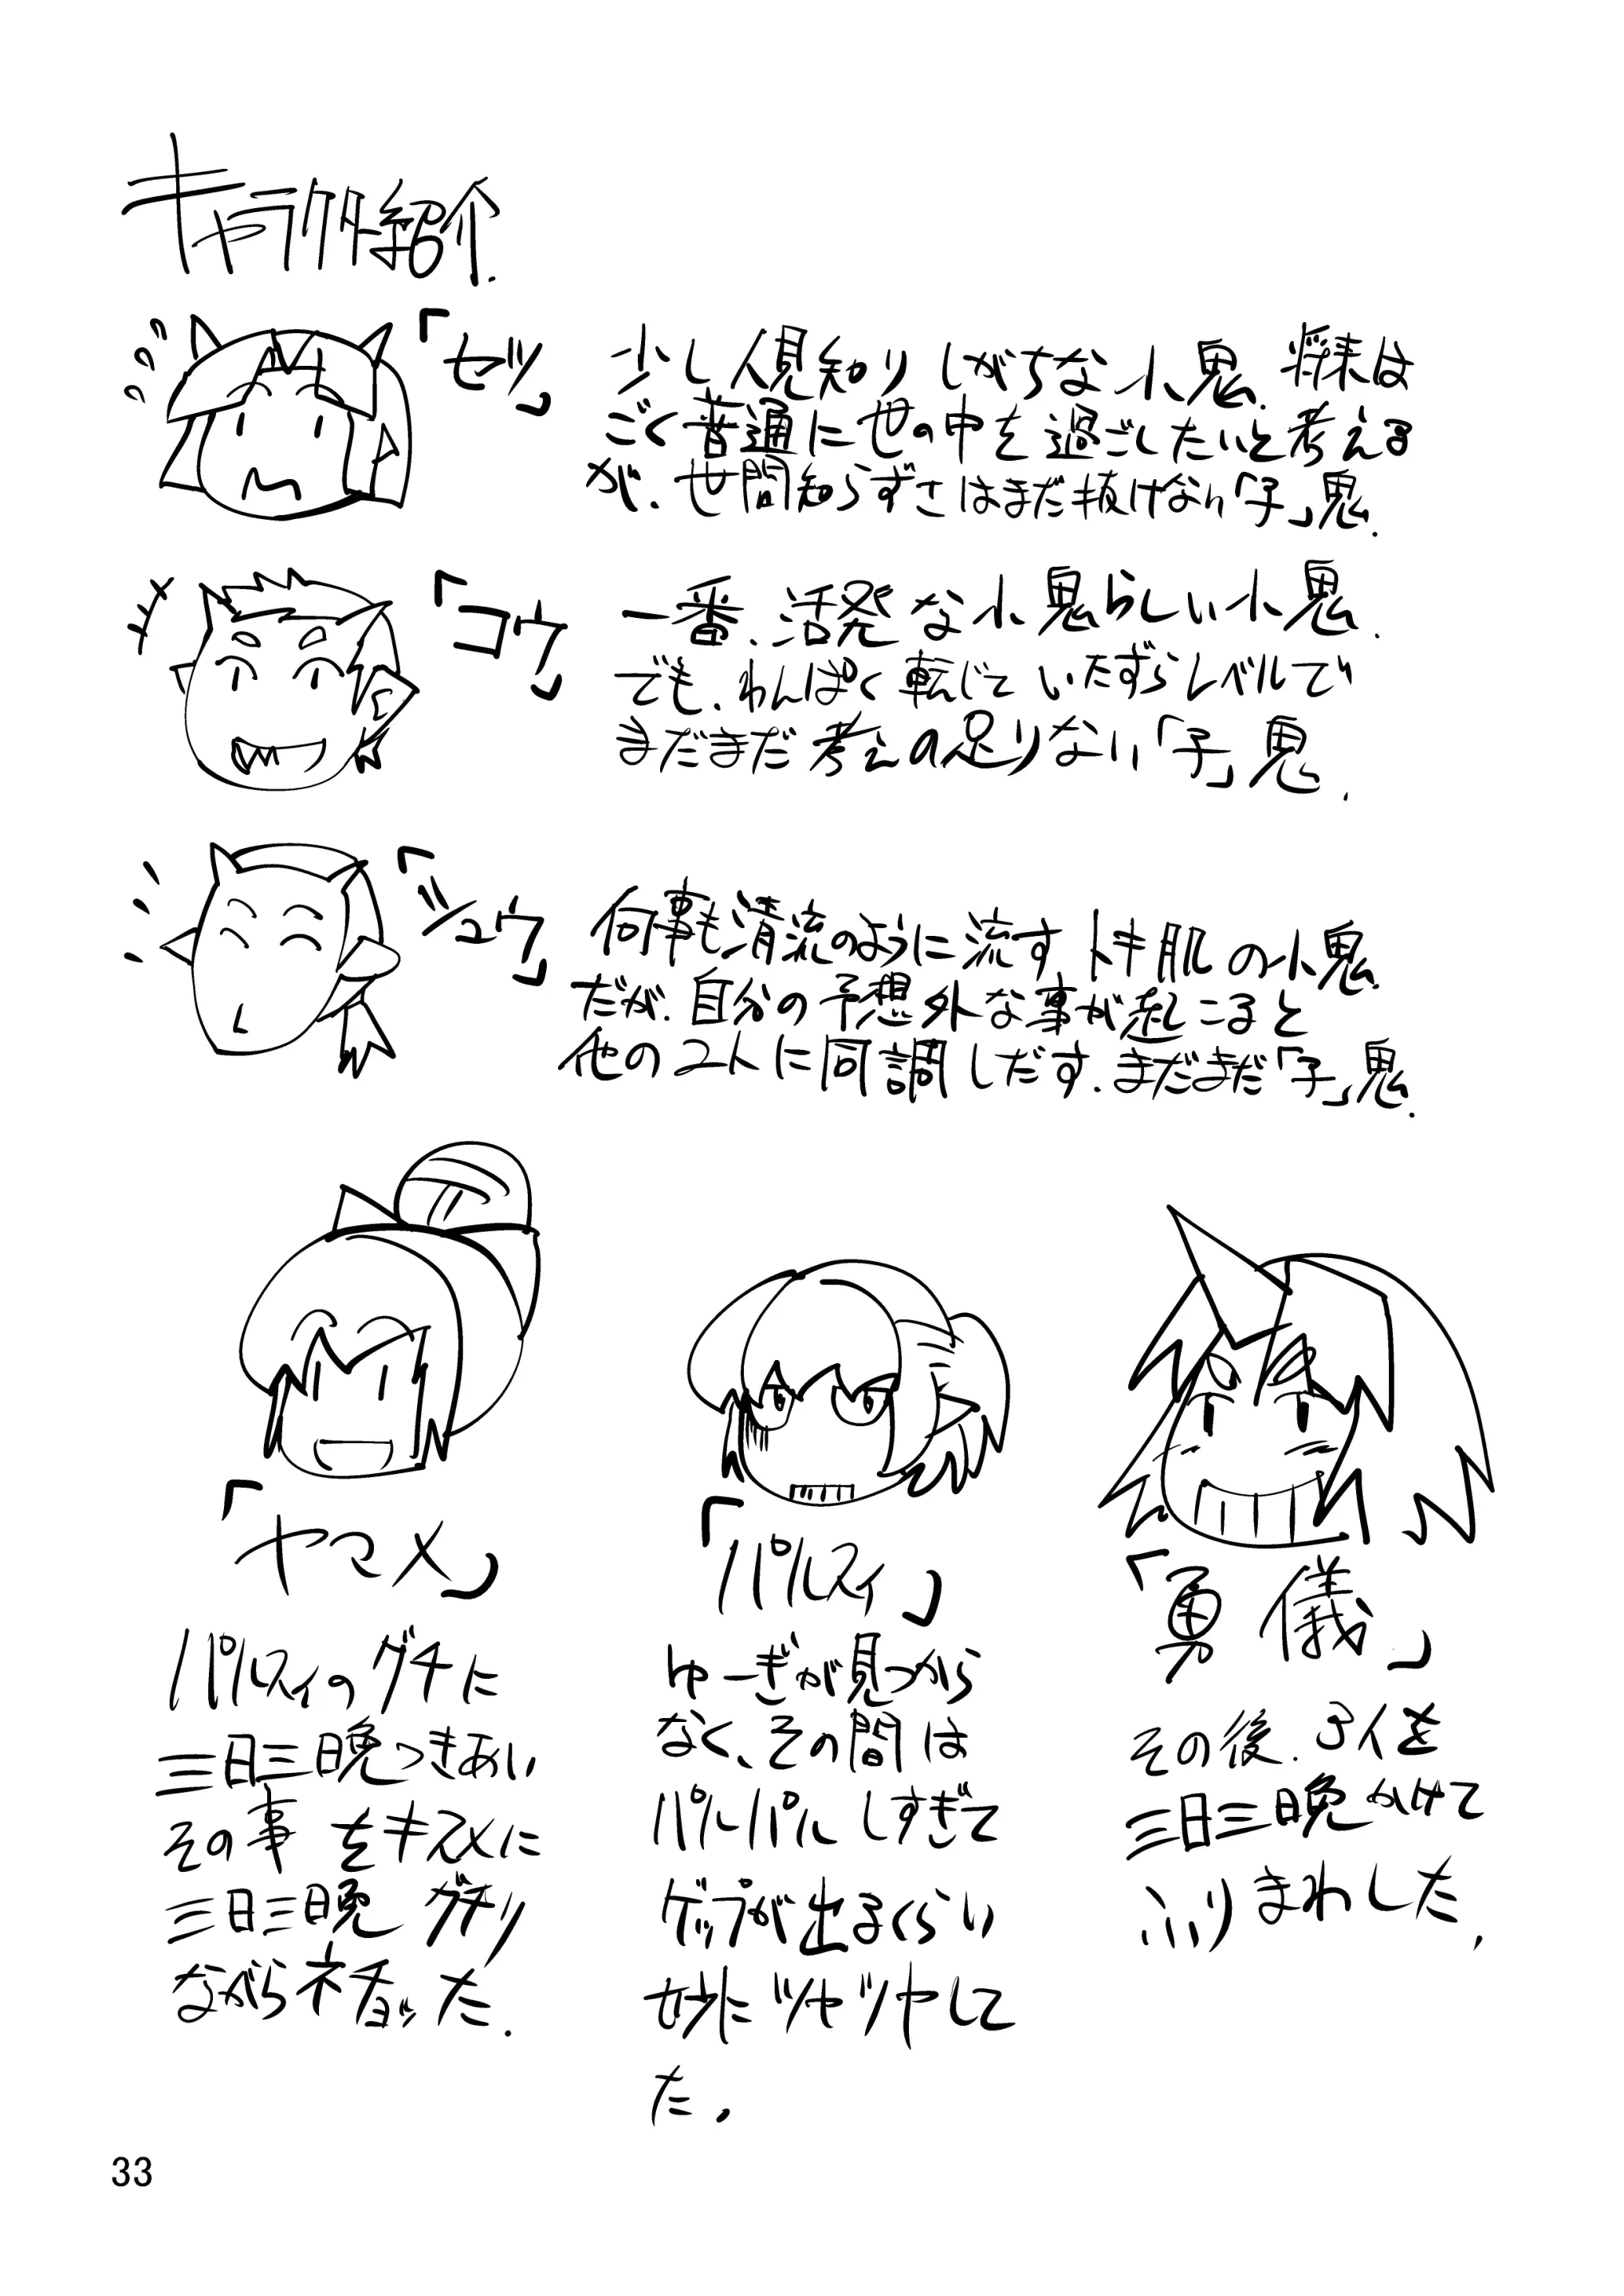 キャラクター紹介.
「セツ」
少し人見知りしがちな小鬼.将来は
ごく普通に世の中を過ごしたいと考える
が.世間知らずさはまだ抜けない「子」鬼.
「コウ」
一番.活発な小鬼らしい小鬼.
でも.わんぱく転じていたずらレベルで
まだまだ考えの足りない「子」鬼.
「シュウ」
何事も清流のように流すトキ肌の小鬼.
だが.自分の予想外な事が起こると
他の2人に同調しだす.まだまだ「子」鬼.
「ヤマメ」
パルスィのグチに
三日三晩つきあい
その事をキスメに
三日三晩グチリ
ながらネチョッた.
「パルスィ」
ゆーぎが見つから
なく、その間は
パルパルしすぎて
ゲップが出るくらい
妙にツヤツヤして
た.
「勇儀」
その後.3人を
三日三晩かけて
ふりまわした.
33